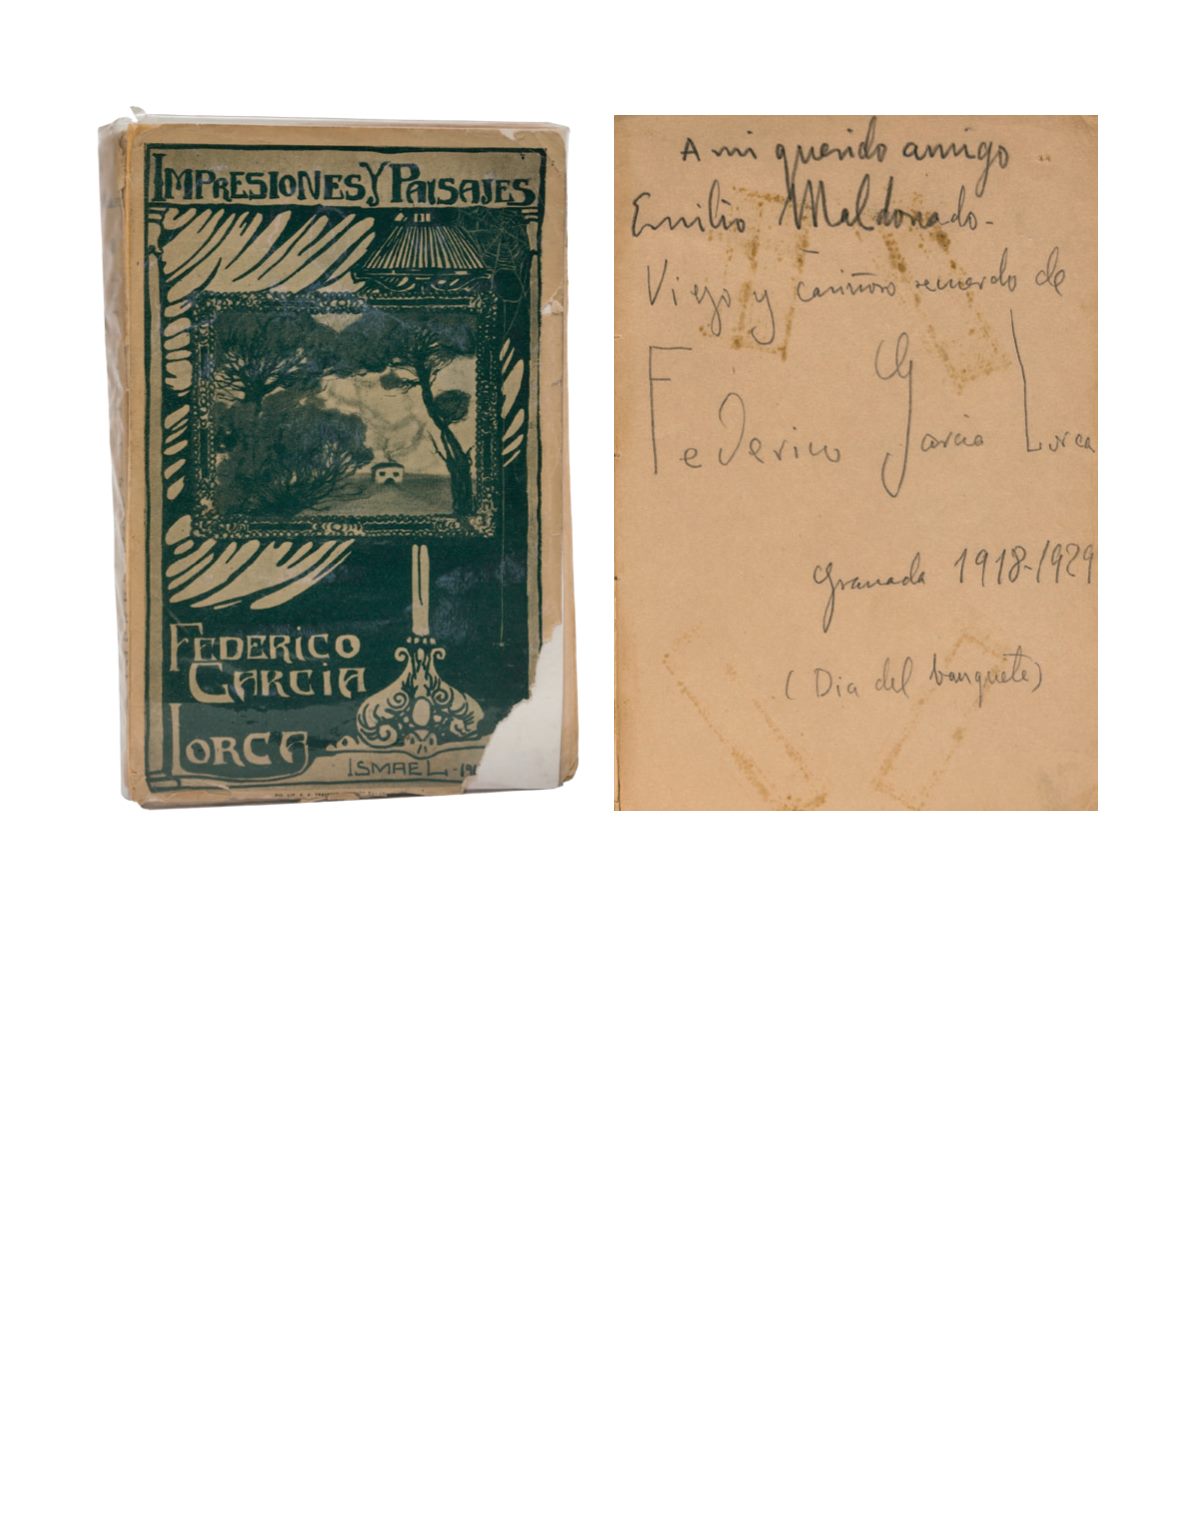 IMPRESIONES Y PAISAJES
FEDERICO
GARCIA
LORCA
ISMAEL -
A mi querido amigo
Emilio Maldonado-
Viejo y cariñoso recuerdo de
Federico García Lorca
Granada 1918-1929
(Dia del banquete)